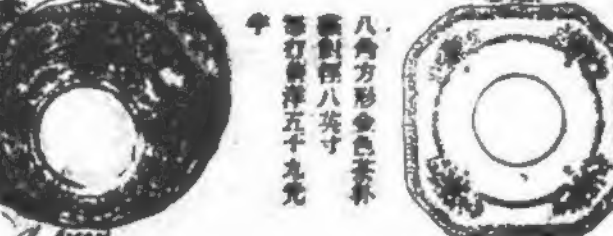 八角方形金色茶杯
對徑八英寸
打售洋五十九元
半